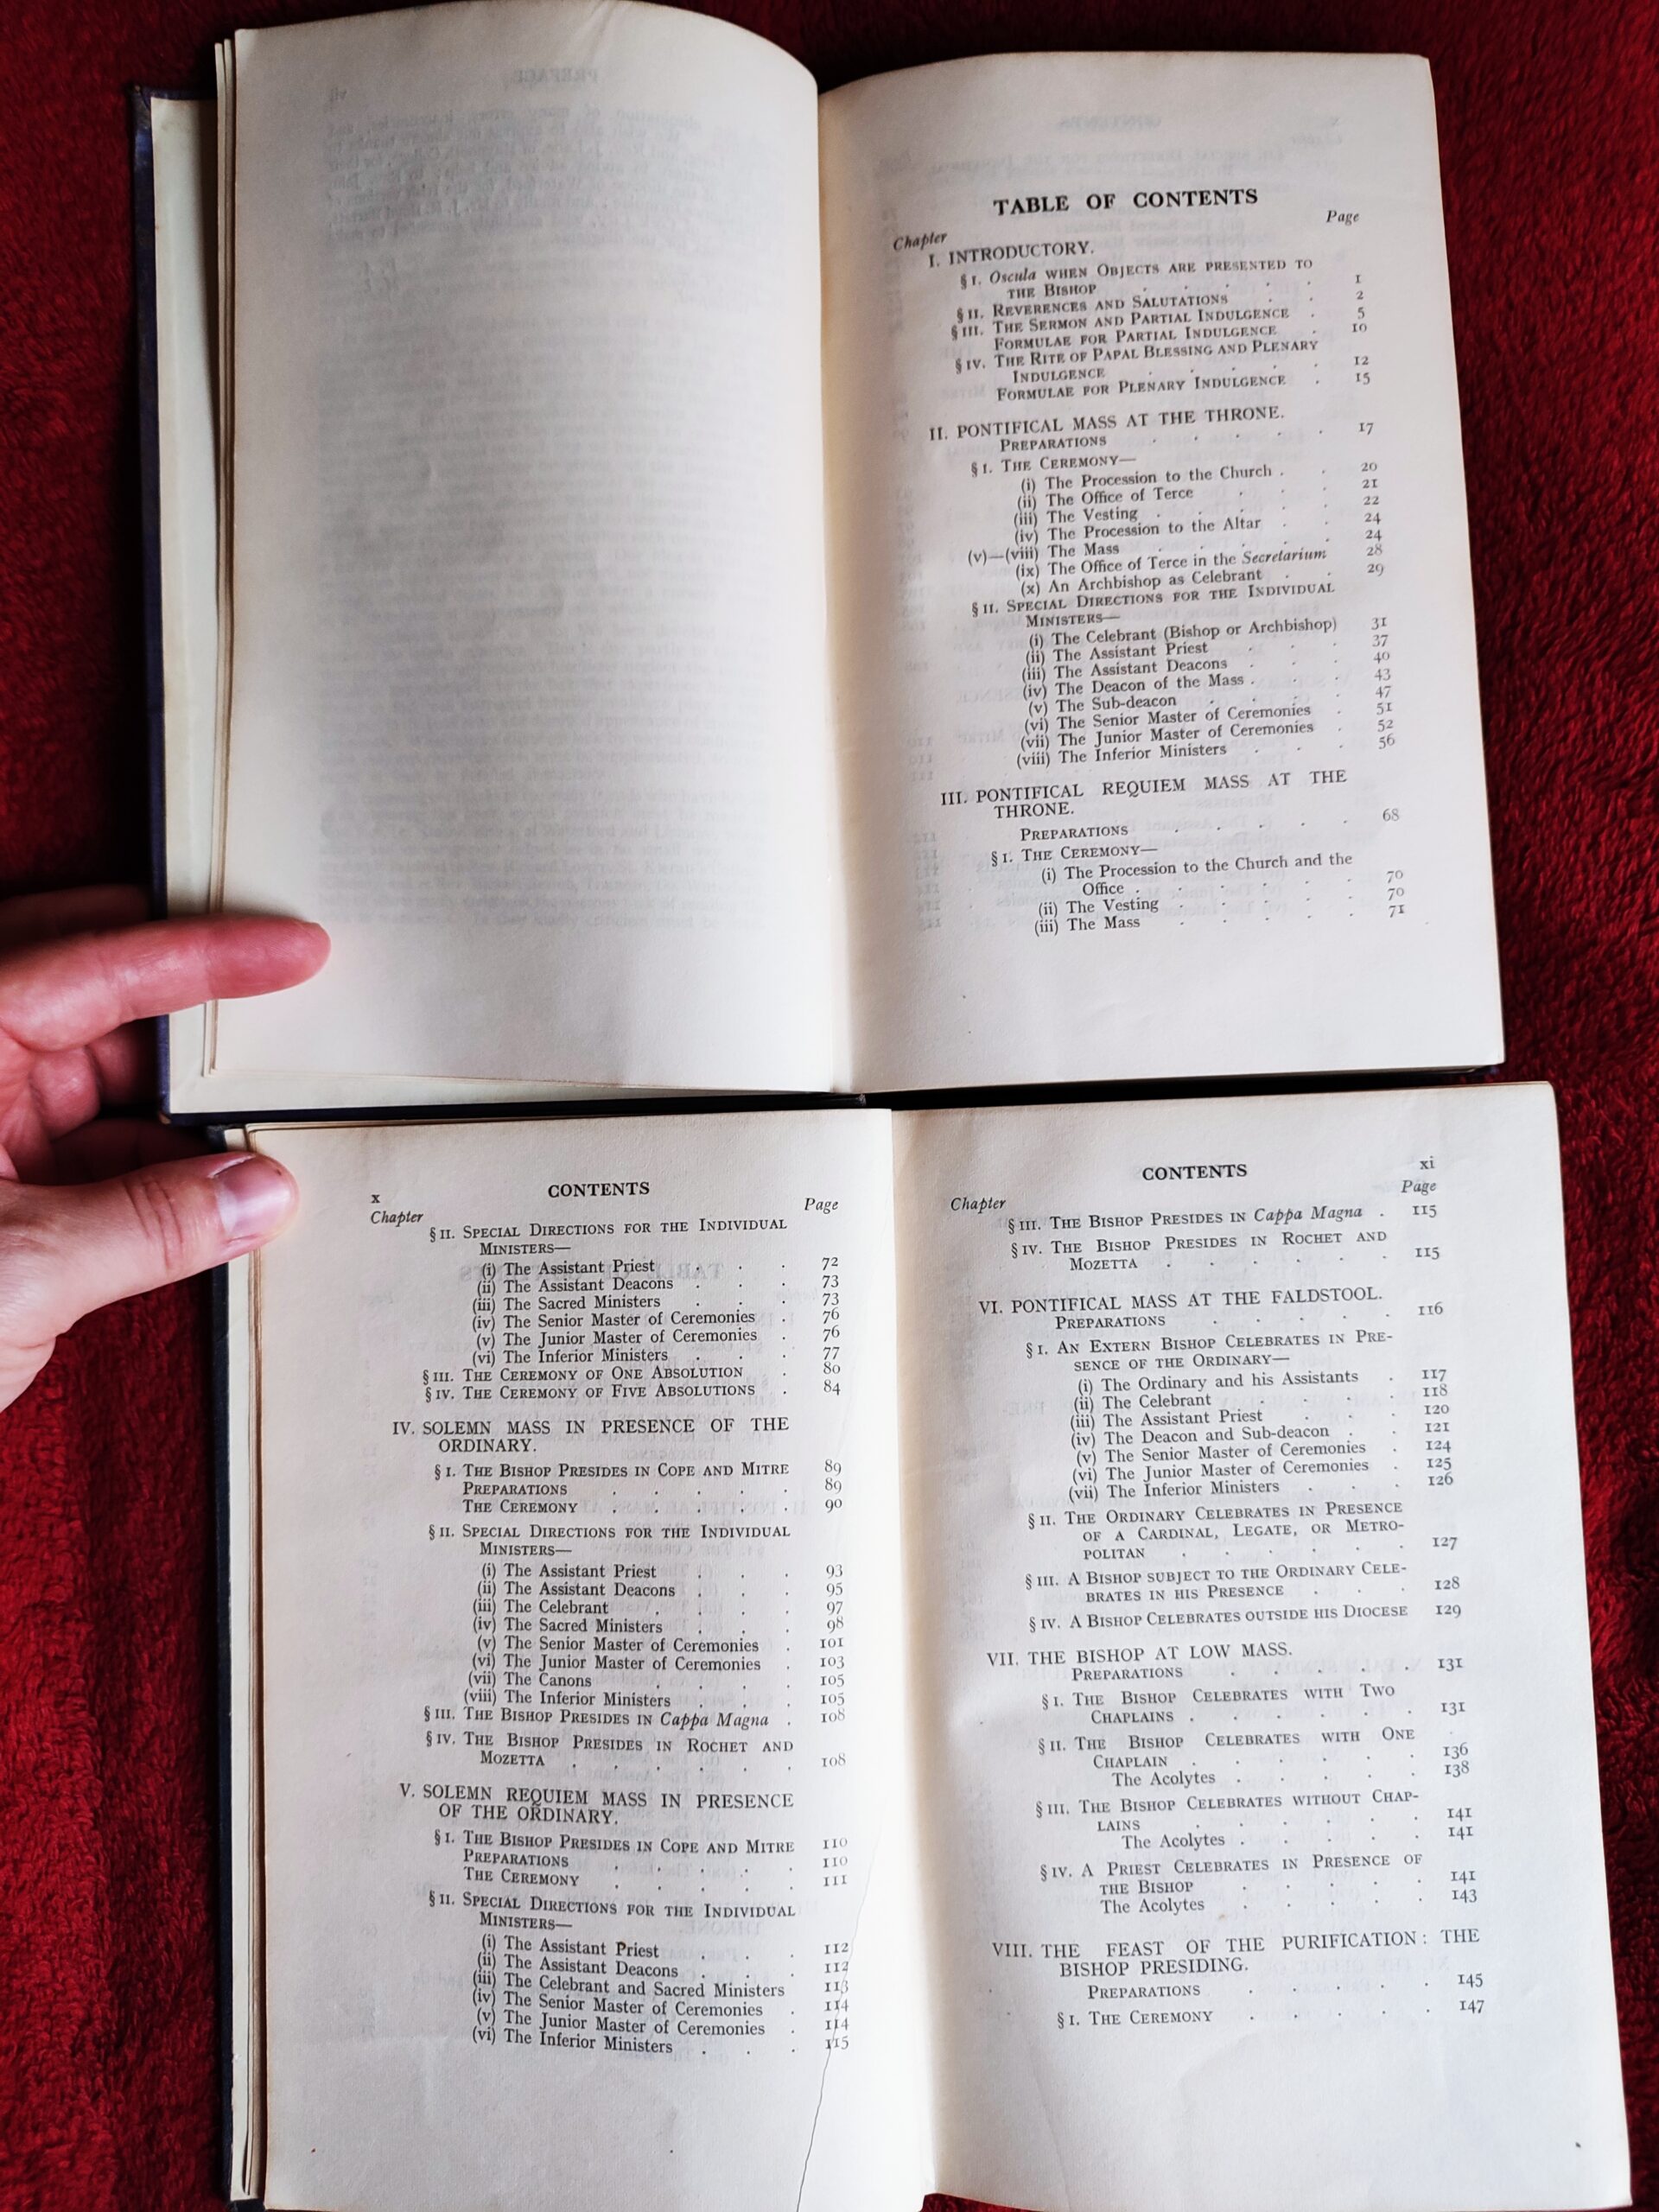 TABLE OF CONTENTS
Chapter Page
I. INTRODUCTORY.
§ I. Oscula WHEN OBJECTS ARE PRESENTED TO
THE BISHOP . . . . . 1
§ II. REVERENCES AND SALUTATIONS . . 2
§ III. THE SERMON AND PARTIAL INDULGENCE . 5
FORMULAE FOR PARTIAL INDULGENCE . 10
§ IV. THE RITE OF PAPAL BLESSING AND PLENARY
INDULGENCE . . . . . 12
FORMULAE FOR PLENARY INDULGENCE . 15
II. PONTIFICAL MASS AT THE THRONE.
PREPARATIONS . . . . . 17
§ I. THE CEREMONY—
(i) The Procession to the Church . . 20
(ii) The Office of Terce . . . 21
(iii) The Vesting . . . . . 22
(iv) The Procession to the Altar . . 24
(v)—(viii) The Mass . . . . . 24
(ix) The Office of Terce in the Secretarium 28
(x) An Archbishop as Celebrant . . 29
§ II. SPECIAL DIRECTIONS FOR THE INDIVIDUAL
MINISTERS—
(i) The Celebrant (Bishop or Archbishop) 31
(ii) The Assistant Priest . . . 37
(iii) The Assistant Deacons . . . 40
(iv) The Deacon of the Mass . . . 43
(v) The Sub-deacon . . . . 47
(vi) The Senior Master of Ceremonies . 51
(vii) The Junior Master of Ceremonies . 52
(viii) The Inferior Ministers . . . 56
III. PONTIFICAL REQUIEM MASS AT THE
THRONE.
PREPARATIONS . . . . . 68
§ I. THE CEREMONY—
(i) The Procession to the Church and the
Office . . . . . . 70
(ii) The Vesting . . . . . 70
(iii) The Mass . . . . . 71
x CONTENTS
Chapter Page
§ II. SPECIAL DIRECTIONS FOR THE INDIVIDUAL
MINISTERS—
(i) The Assistant Priest . . . 72
(ii) The Assistant Deacons . . . 73
(iii) The Sacred Ministers . . . 73
(iv) The Senior Master of Ceremonies . 76
(v) The Junior Master of Ceremonies . 76
(vi) The Inferior Ministers . . . 77
§ III. THE CEREMONY OF ONE ABSOLUTION . 80
§ IV. THE CEREMONY OF FIVE ABSOLUTIONS . 84
IV. SOLEMN MASS IN PRESENCE OF THE
ORDINARY.
§ I. THE BISHOP PRESIDES IN COPE AND MITRE 89
PREPARATIONS . . . . . 89
THE CEREMONY . . . . . 90
§ II. SPECIAL DIRECTIONS FOR THE INDIVIDUAL
MINISTERS—
(i) The Assistant Priest . . . 93
(ii) The Assistant Deacons . . . 95
(iii) The Celebrant . . . . 97
(iv) The Sacred Ministers . . . 98
(v) The Senior Master of Ceremonies . 101
(vi) The Junior Master of Ceremonies . 103
(vii) The Canons . . . . 105
(viii) The Inferior Ministers . . . 105
§ III. THE BISHOP PRESIDES IN Cappa Magna . 108
§ IV. THE BISHOP PRESIDES IN ROCHET AND
MOZETTA . . . . . . 108
V. SOLEMN REQUIEM MASS IN PRESENCE
OF THE ORDINARY.
§ I. THE BISHOP PRESIDES IN COPE AND MITRE 110
PREPARATIONS . . . . . 110
THE CEREMONY . . . . . 111
§ II. SPECIAL DIRECTIONS FOR THE INDIVIDUAL
MINISTERS—
(i) The Assistant Priest . . . 112
(ii) The Assistant Deacons . . . 112
(iii) The Celebrant and Sacred Ministers 113
(iv) The Senior Master of Ceremonies . 114
(v) The Junior Master of Ceremonies . 114
(vi) The Inferior Ministers . . . 115
CONTENTS xi
Chapter Page
§ III. THE BISHOP PRESIDES IN Cappa Magna . 115
§ IV. THE BISHOP PRESIDES IN ROCHET AND
MOZETTA . . . . . . 115
VI. PONTIFICAL MASS AT THE FALDSTOOL.
PREPARATIONS . . . . . 116
§ I. AN EXTERN BISHOP CELEBRATES IN PRE-
SENCE OF THE ORDINARY—
(i) The Ordinary and his Assistants . 117
(ii) The Celebrant . . . . 118
(iii) The Assistant Priest . . . 120
(iv) The Deacon and Sub-deacon . . 121
(v) The Senior Master of Ceremonies . 124
(vi) The Junior Master of Ceremonies . 125
(vii) The Inferior Ministers . . . 126
§ II. THE ORDINARY CELEBRATES IN PRESENCE
OF A CARDINAL, LEGATE, OR METRO-
POLITAN . . . . . . 127
§ III. A BISHOP SUBJECT TO THE ORDINARY CELE-
BRATES IN HIS PRESENCE . . . 128
§ IV. A BISHOP CELEBRATES OUTSIDE HIS DIOCESE 129
VII. THE BISHOP AT LOW MASS.
PREPARATIONS . . . . . 131
§ I. THE BISHOP CELEBRATES WITH TWO
CHAPLAINS . . . . . . 131
§ II. THE BISHOP CELEBRATES WITH ONE
CHAPLAIN . . . . . . 136
The Acolytes . . . . . 138
§ III. THE BISHOP CELEBRATES WITHOUT CHAP-
LAINS . . . . . . 141
The Acolytes . . . . . 141
§ IV. A PRIEST CELEBRATES IN PRESENCE OF
THE BISHOP . . . . . 141
The Acolytes . . . . . 143
VIII. THE FEAST OF THE PURIFICATION: THE
BISHOP PRESIDING.
PREPARATIONS . . . . . 145
§ I. THE CEREMONY . . . . . 147